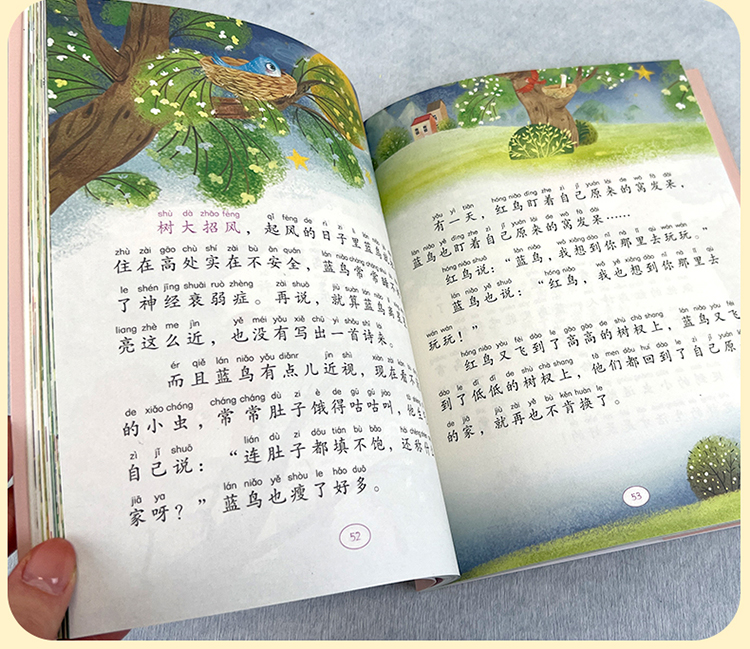 shù dà zhāo fēng qǐ fēng de rì zi lǐ
树大招风，起风的日子里蓝
zhù zài gāo chù shí zài bù ān quán lán niǎo cháng cháng
住在高处实在不安全，蓝鸟常常
le shén jīng shuāi ruò zhèng zài shuō jiù suàn lán niǎo
了神经衰弱症。再说，就算蓝鸟
liang zhè me jìn yě méi yǒu xiě chū yì shǒu shī lái
亮这么近，也没有写出一首诗来。
ér qiě lán niǎo yǒu diǎnr jìn shì xiàn zài kàn
而且蓝鸟有点儿近视，现在看
de xiǎo chóng cháng cháng dù zi è de gū gū jiào
的小虫，常常肚子饿得咕咕叫，他
zì jǐ shuō lián dù zi dōu tián bù bǎo hái
自己说：“连肚子都填不饱，还称什
jiā ya lán niǎo yě shòu le hǎo duō
家呀？”蓝鸟也瘦了好多。
52
yǒu yì tiān hóng niǎo dīng zhe zì jǐ yuán lái de wō fā dāi
有一天，红鸟盯着自己原来的窝发呆，
lán niǎo yě dīng zhe zì jǐ yuán lái de wō fā dāi
蓝鸟也盯着自己原来的窝发呆……
hóng niǎo shuō lán niǎo wǒ xiǎng dào nǐ nà lǐ qù
红鸟说：“蓝鸟，我想到你那里去玩玩。”
lán niǎo yě shuō hóng niǎo wǒ yě xiǎng dào nǐ nà lǐ qù
蓝鸟也说：“红鸟，我也想到你那里去
wán wán
玩玩！”
hóng niǎo yòu fēi dào le gāo gāo de shù chà shang lán niǎo yòu fēi
红鸟又飞到了高高的树杈上，蓝鸟又飞
dào le dī dī de shù chà shang tā men dōu huí dào le zì jǐ yuán
到了低低的树杈上，他们都回到了自己原
de jiā jiù zài yě bù kěn huàn le
的家，就再也不肯换了。
53